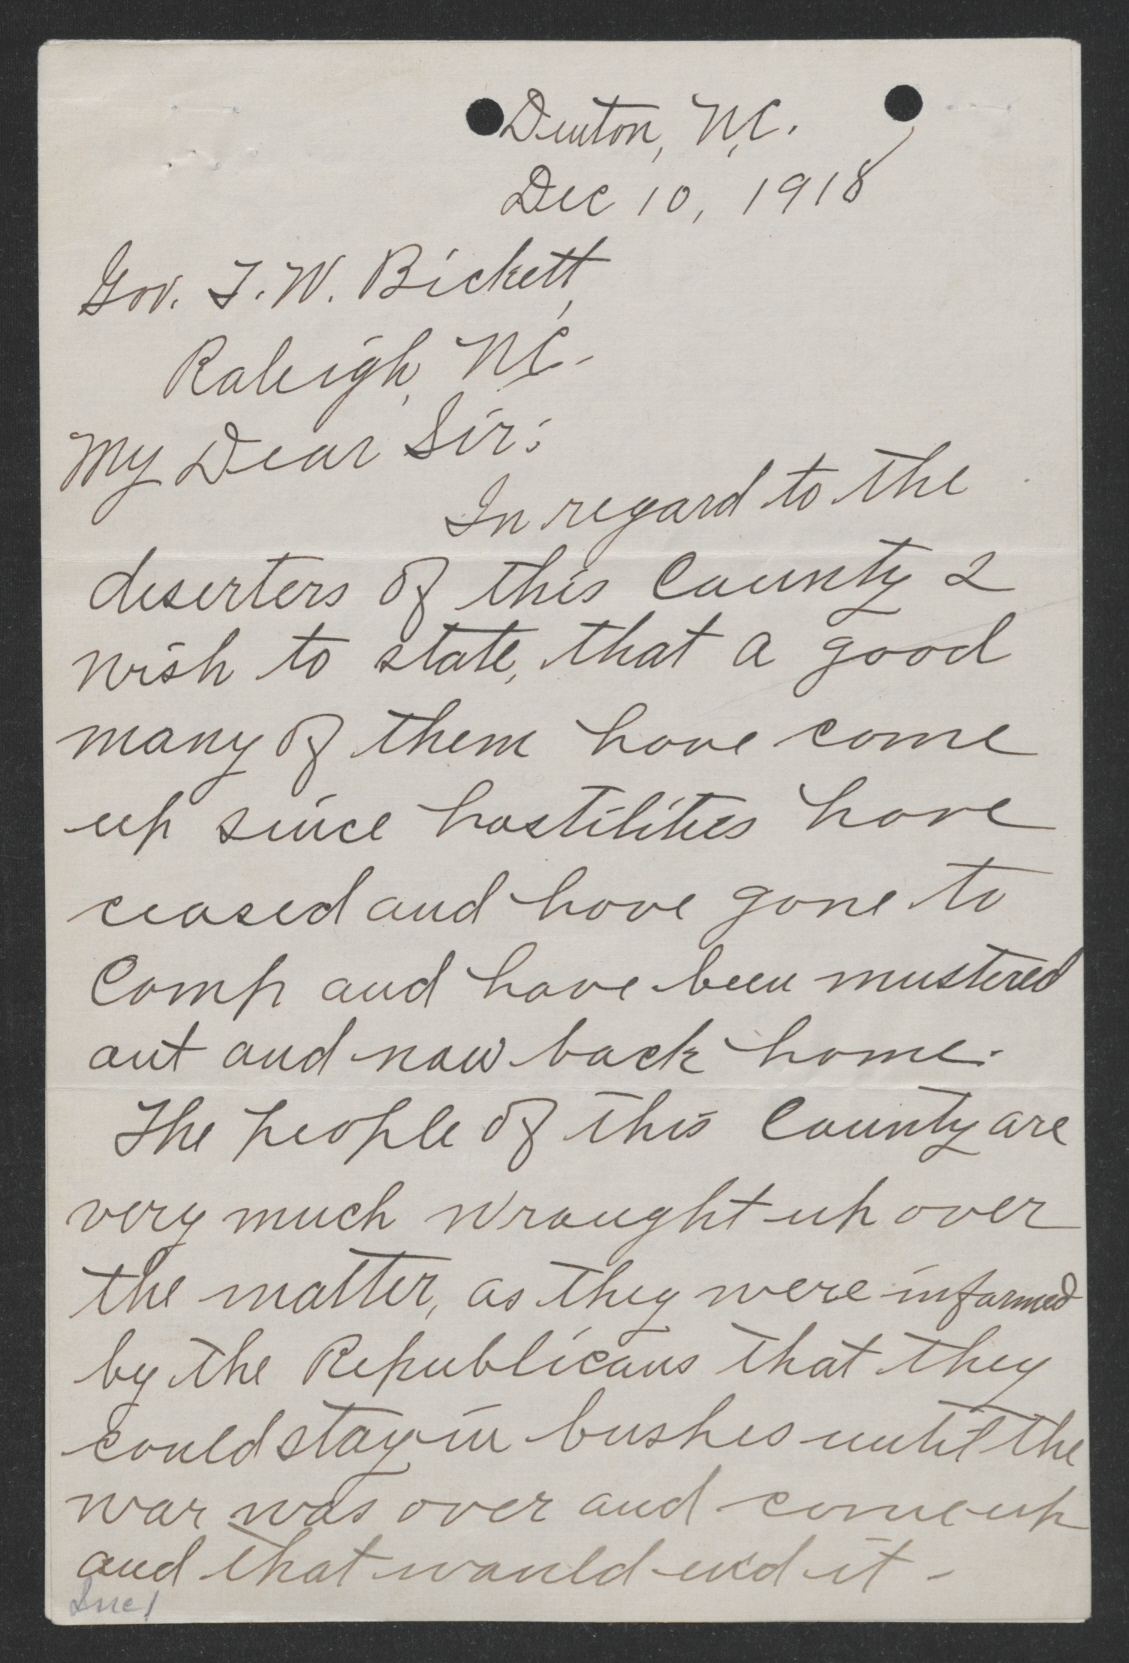 Denton, N.C.
Dec 10, 1918
Gov. T. W. Bickett,
Raleigh, N.C.
My Dear Sir:
In regard to the
deserters of this County I
wish to state, that a good
many of them have come
up since hostilities have
ceased and have gone to
Camp and have been mustered
out and now back home.
The people of this County are
very much wrought up over
the matter, as they were informed
by the Republicans that they
could stay in bushes until the
war was over and come up
and that would end it -